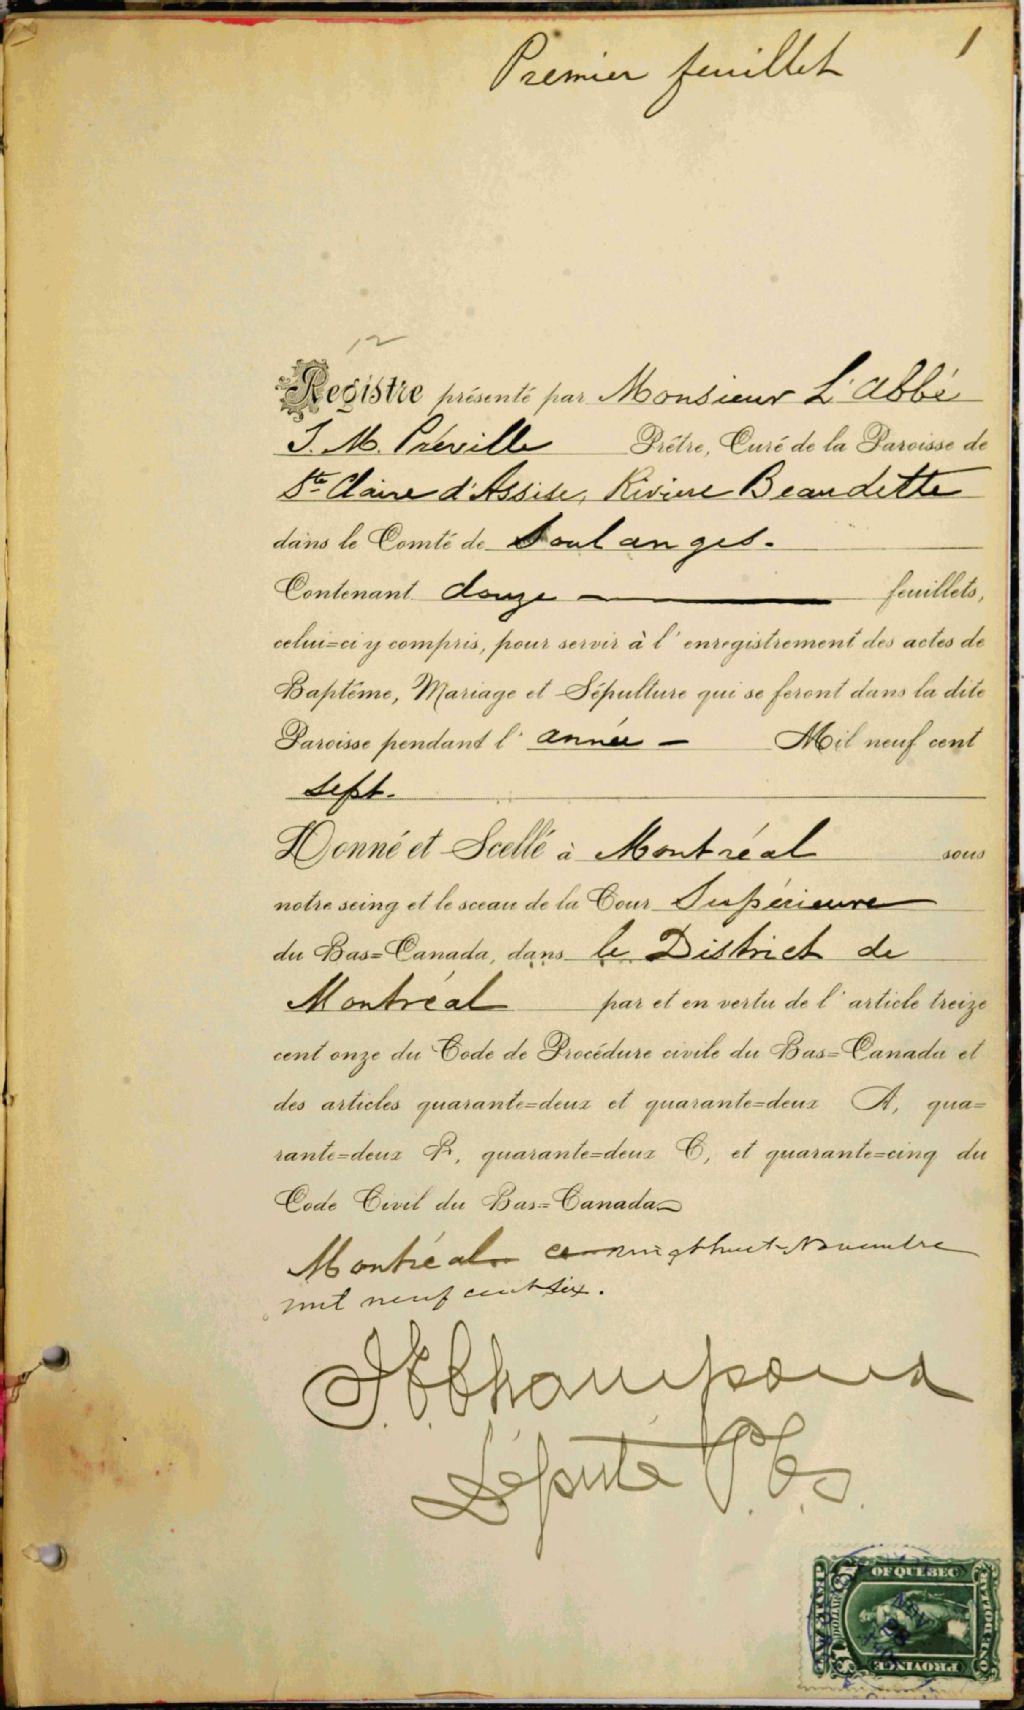 Premier feuillet
1
12
Registre présenté par Monsieur L'abbé
J. M. Préville Prêtre, Curé de la Paroisse de
Ste Claire d'Assise, Riviere Beaudette
dans le Comté de Soulanges.
Contenant douze feuillets,
celui=ci y compris, pour servir à l'enregistrement des actes de
Baptême, Mariage et Sépulture qui se feront dans la dite
Paroisse pendant l'année — Mil neuf cent
sept.
Donné et Scellé à Montréal sous
notre seing et le sceau de la Cour Supérieure
du Bas=Canada, dans le District de
Montréal par et en vertu de l'article treize
cent onze du Code de Procédure civile du Bas=Canada et
des articles quarante=deux et quarante=deux A, qua=
rante=deux B, quarante=deux C, et quarante=cinq du
Code Civil du Bas=Canada
Montréal ce vingthuit Novembre
mil neuf cent six.
Député P.C.S.
OF QUEBEC
PROVINCE
LAW STAMP
NOV
28